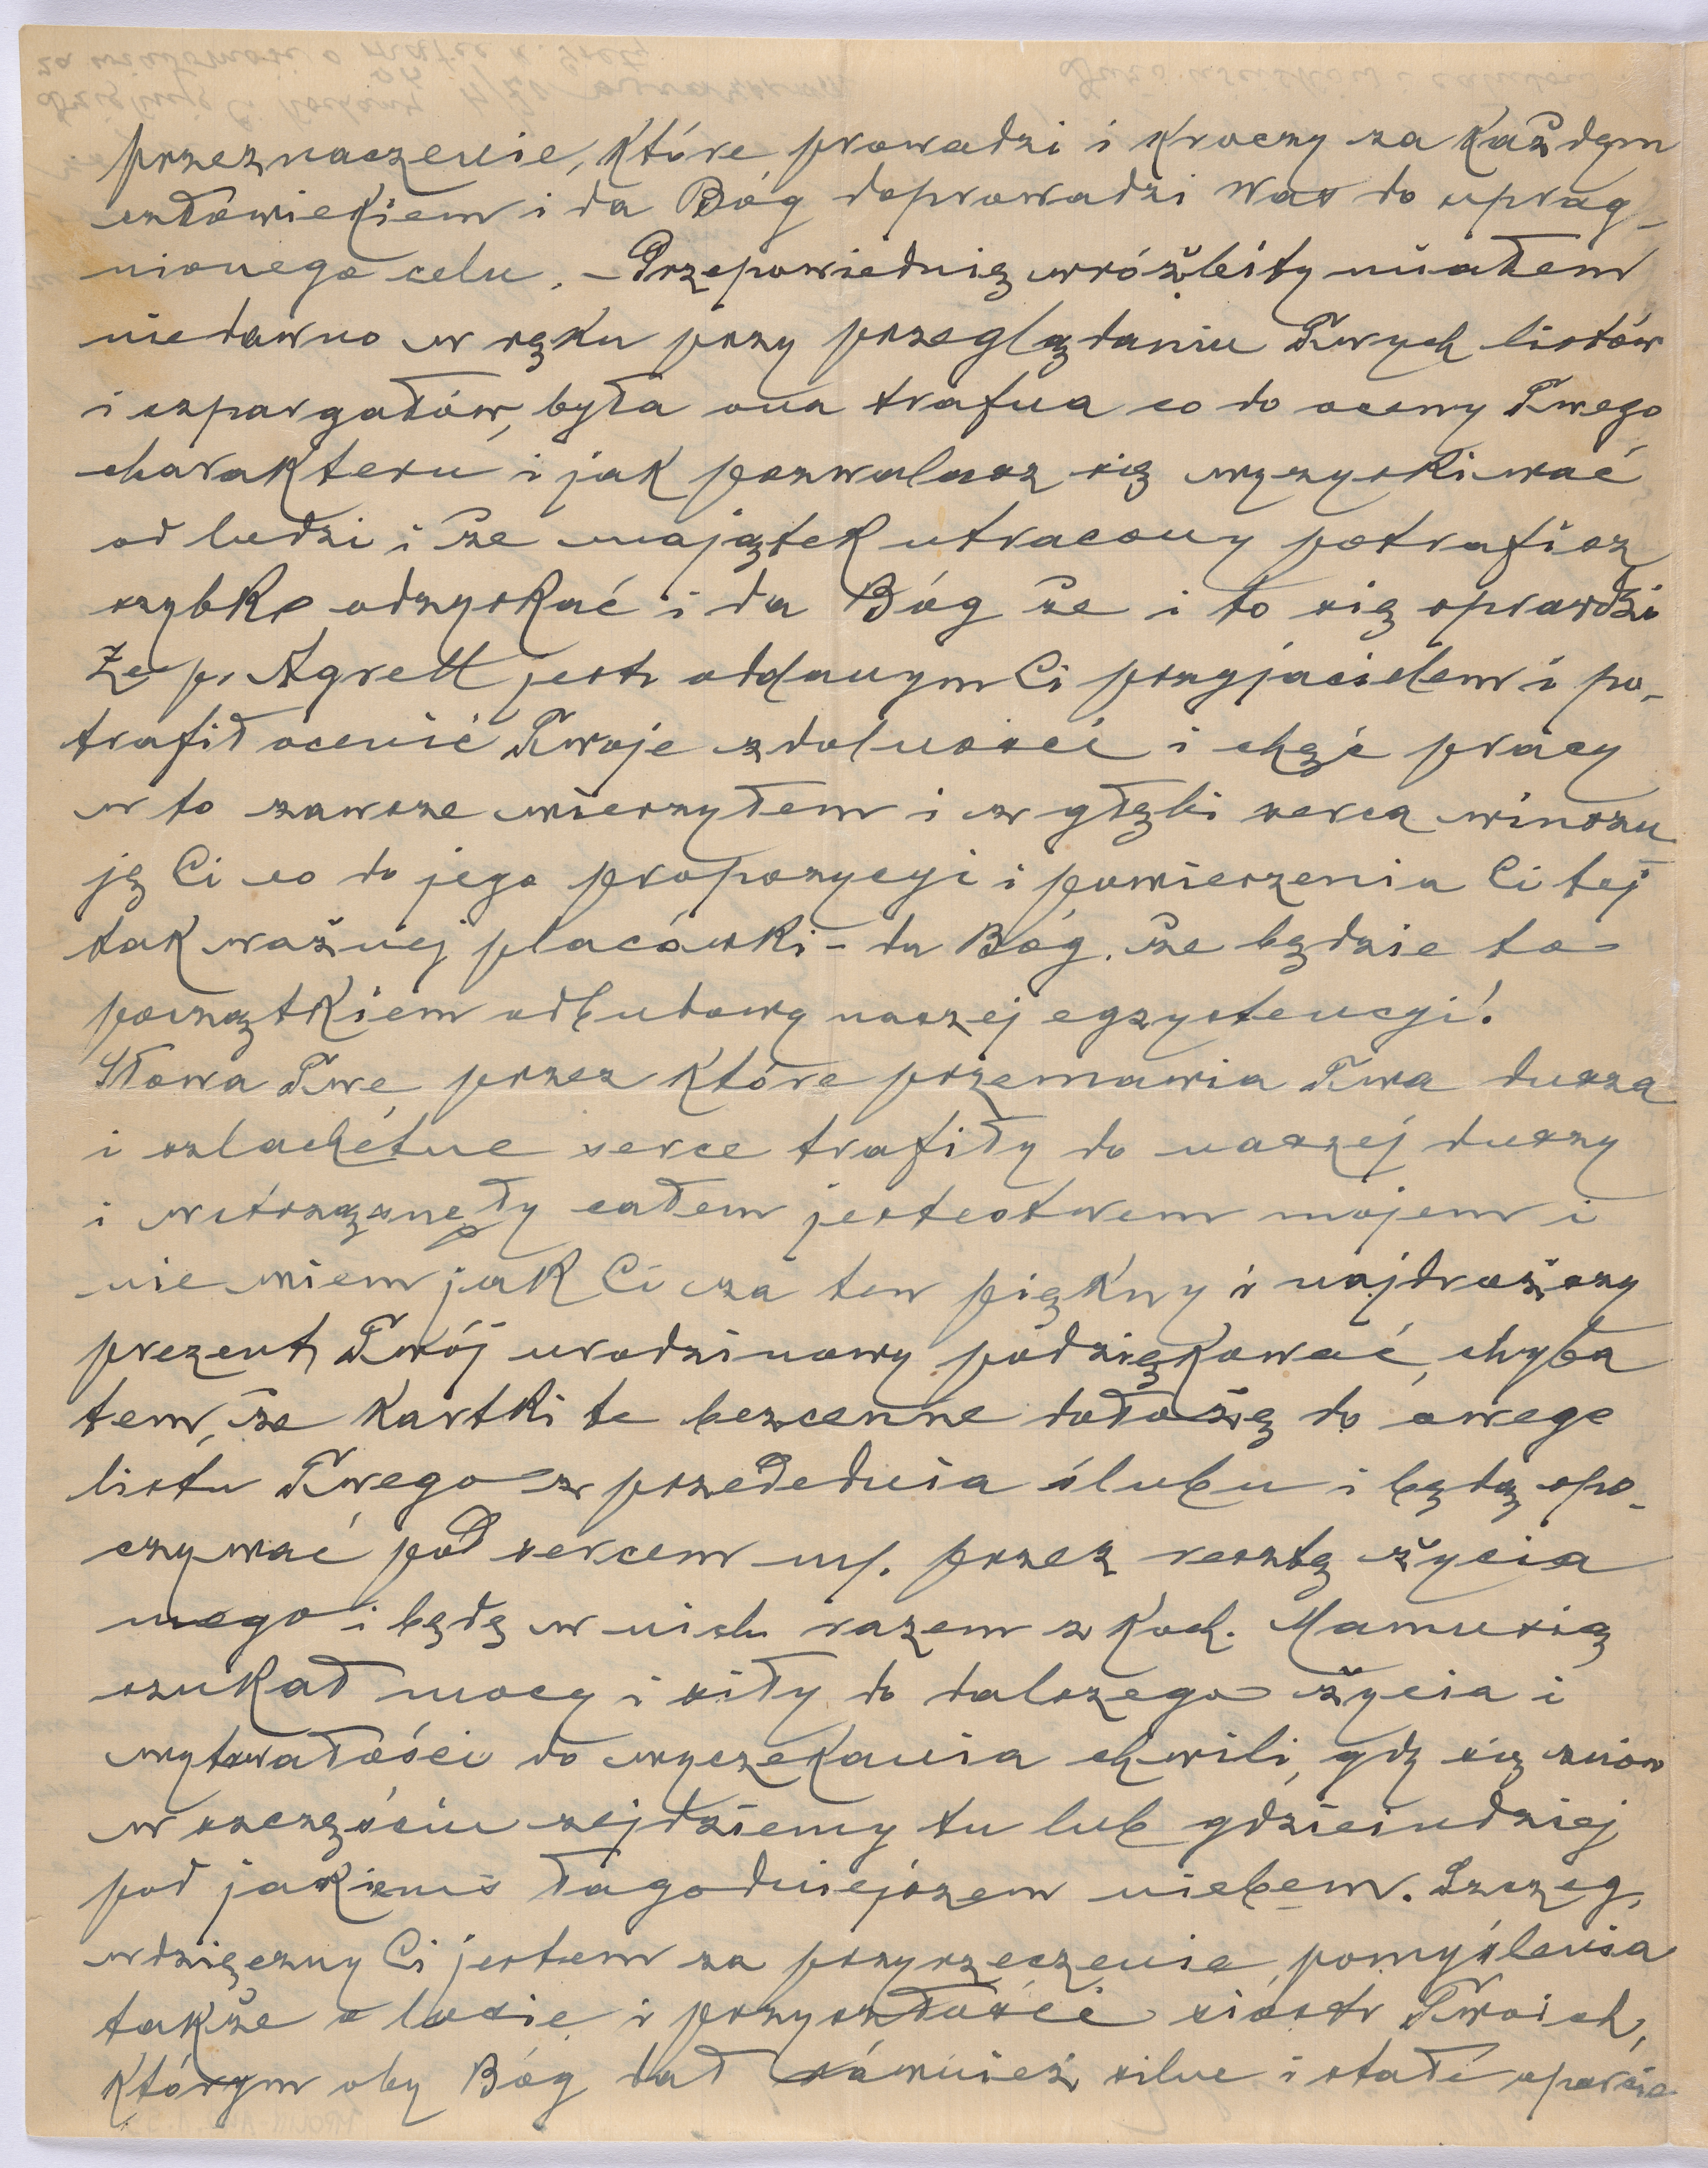 przeznaczenie, które prowadzi i kroczy za każdym
człowiekiem i da Bóg doprowadzi Was do uprag-
nionego celu. – Przepowiednię wróżbity miałem
niedawno w ręku przy przeglądaniu Twych listów
i szpargałów, była ona trafna co do oceny Twego
charakteru i jak pozwalasz się wyzyskiwać
od ludzi i że majątek utracony potrafisz
szybko odzyskać i da Bóg że i to się sprawdzi
Że p. Agrell jest oddanym Ci przyjacielem i po-
trafił ocenić Twoje zdolności i chęć pracy
w to zawsze wierzyłem i z głębi serca winszu
ję Ci co do jego propozycji i powierzenia Ci tej
tak ważnej placówki – da Bóg, że będzie to
początkiem odbudowy naszej egzystencyi!
Słowa Twe przez które przemawia Twa dusza
i szlachetne serce trafiły do naszej duszy
i wstrząsnęły całem jestestwem mojem i
nie wiem jak Ci za ten piękny i najdroższy
prezent Twój urodzinowy podziękować, chyba
tem, że kartki te bezcenne dołożę do owego
listu Twego z przedednia ślubu i będą spo-
czywać pod sercem m. przez resztę życia
mego i będę w nich razem z Koch. Mamusią
szukał mocy i siły do dalszego życia i
wytrwałości do wyczekania chwili, gdy się znów
w szczęściu zejdziemy tu lub gdzieindziej
pod jakiemś łagodniejszem niebem. Szczeg.
wdzięczny Ci jestem za przyrzeczenie pomyślenia
także o losie i przyszłości sióstr Twoich,
którym oby Bóg dał również silne i stałe oparcie